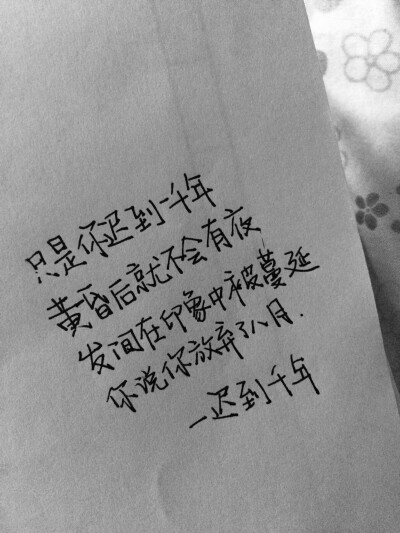 只是你迟到一千年
黄昏后就不会有夜
发间在印象中被蔓延
你说你放弃了八月.
—迟到千年